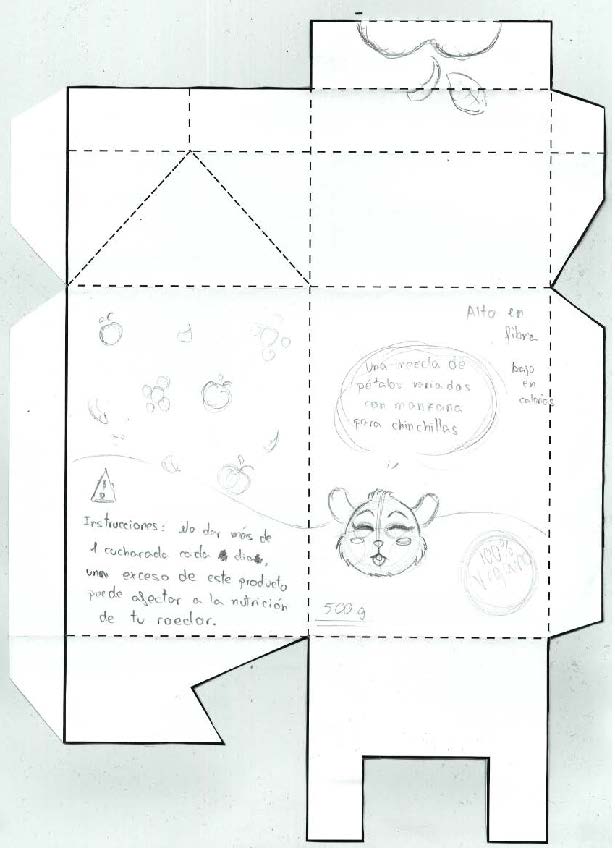 Alto en
fibra
bajo
en
calorías
Una mezcla de
pétalos variados
con manzana
para chinchillas
Instrucciones: No dar más de
1 cucharada cada dia,
un exceso de este producto
puede afectar a la nutrición
de tu roedor.
100%
500 g